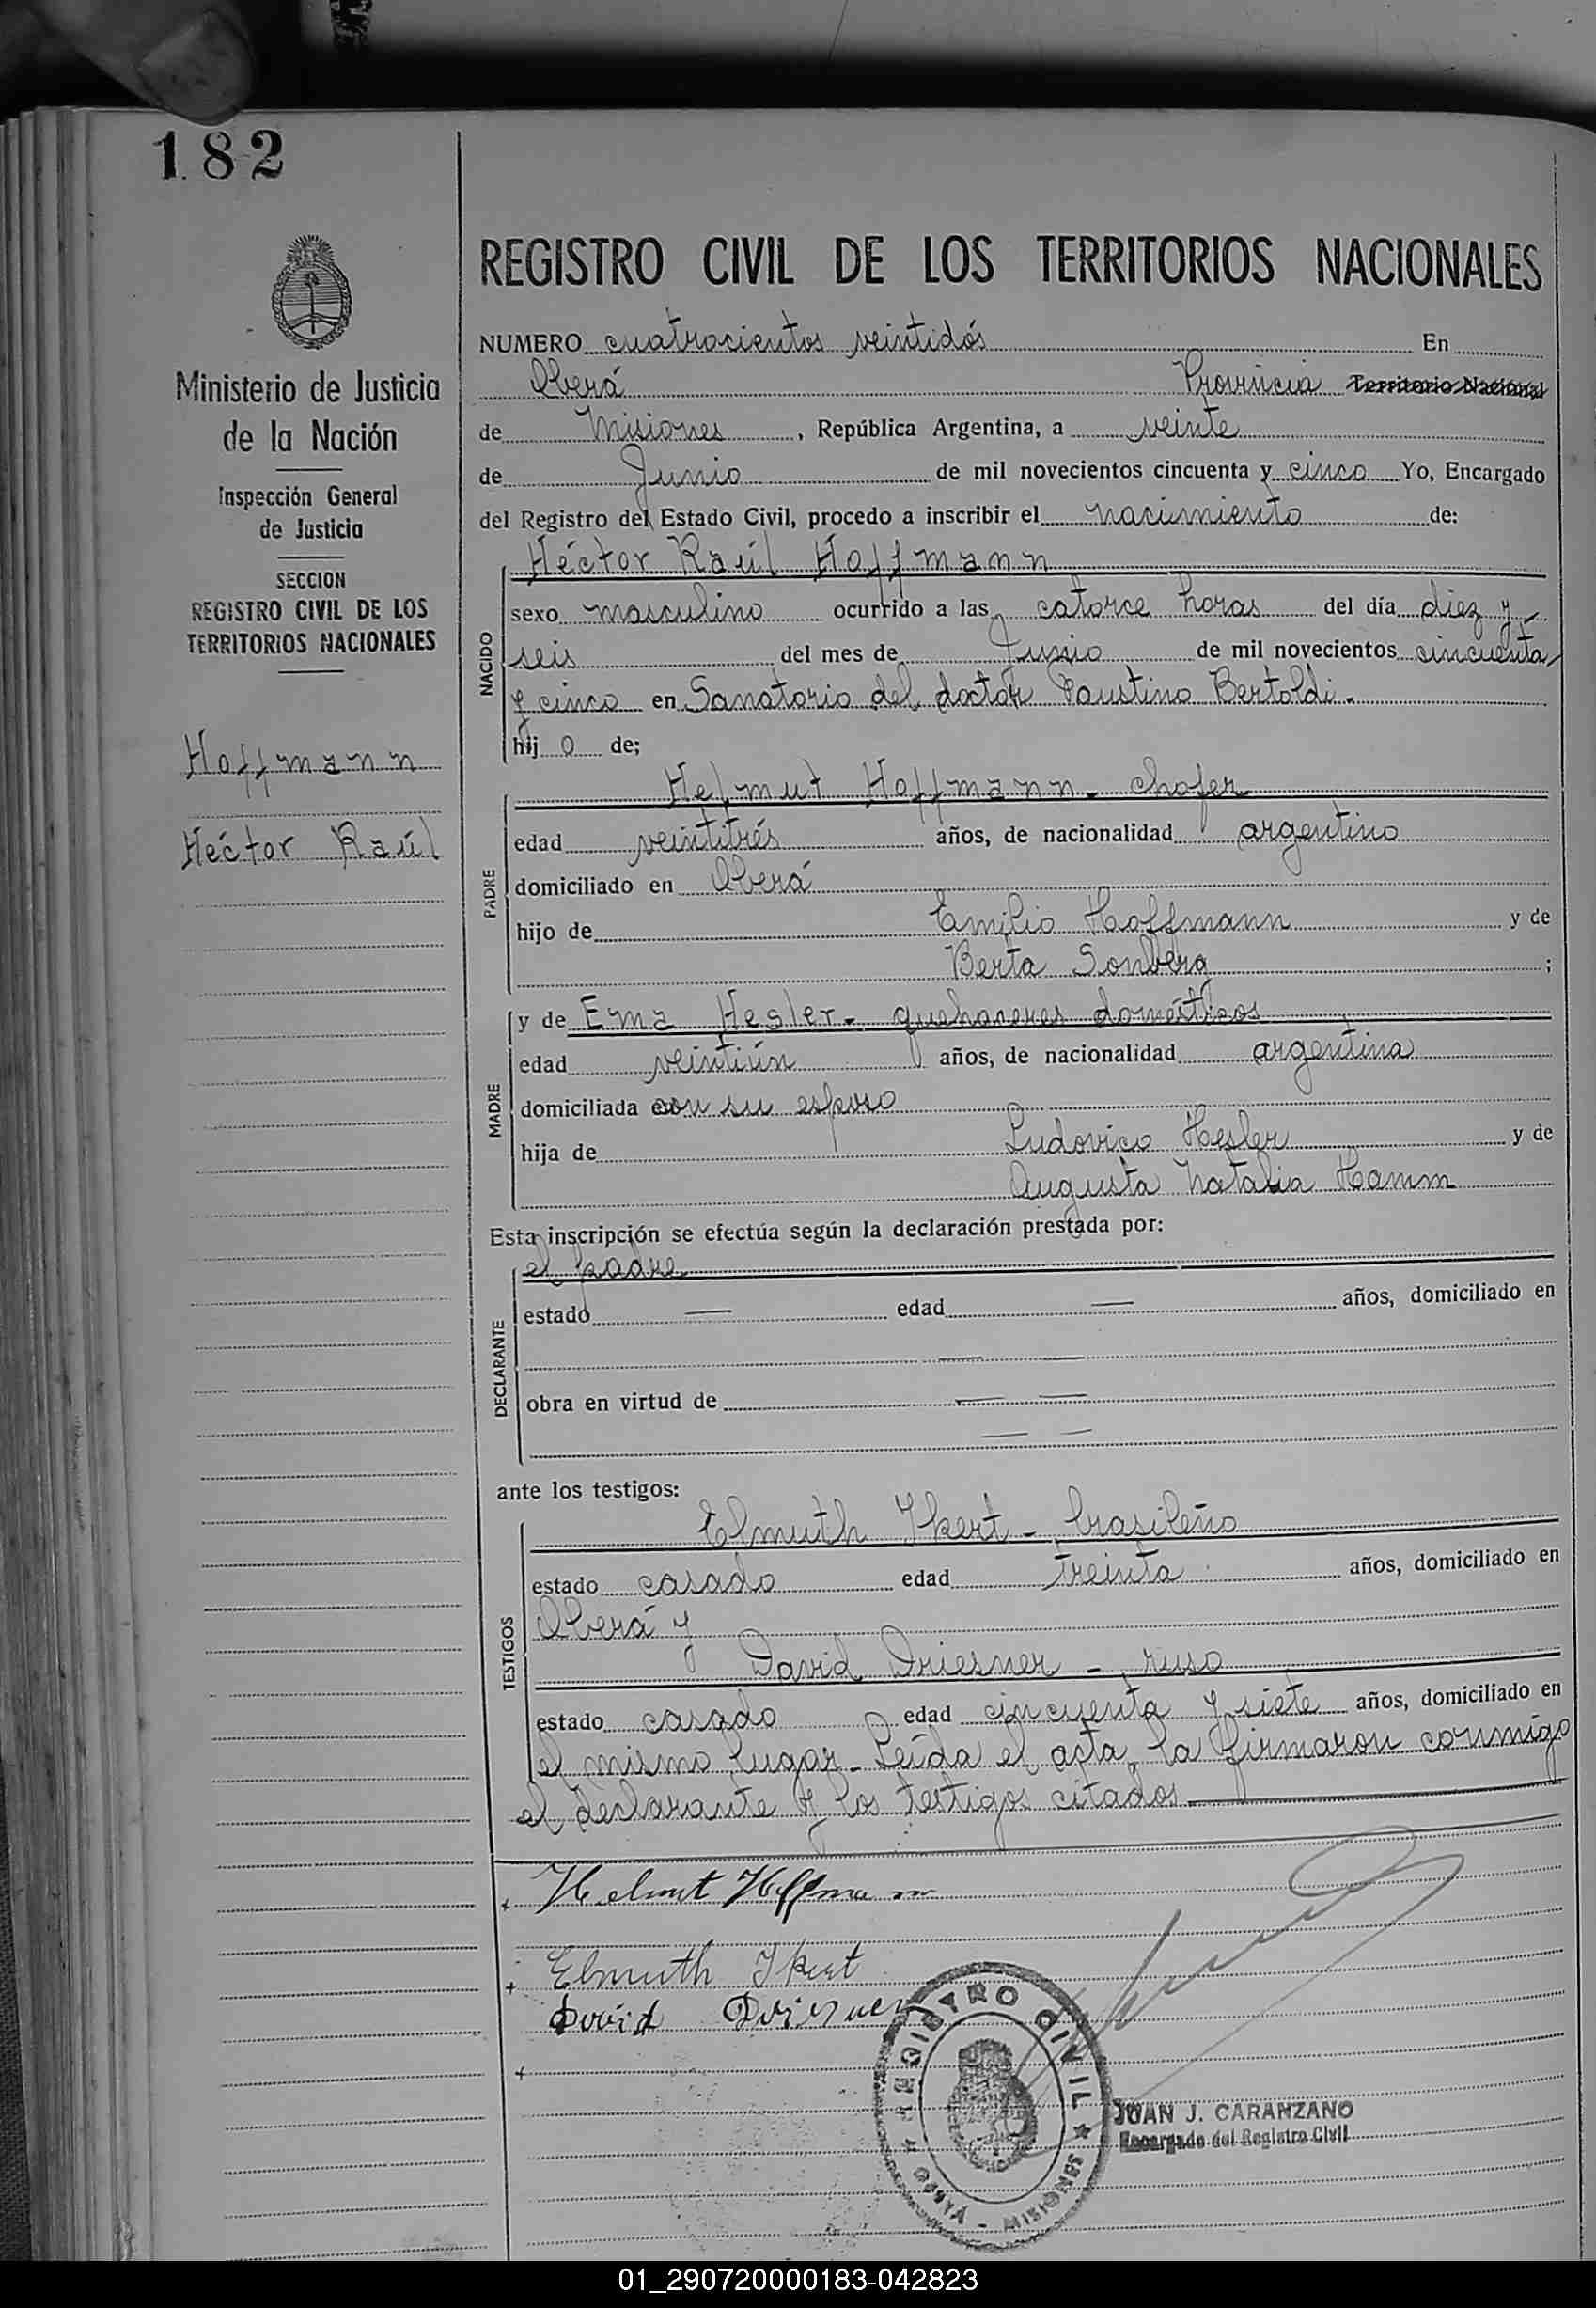 182
REGISTRO CIVIL DE LOS TERRITORIOS NACIONALES
Ministerio de Justicia
de la Nación
Inspección General
de Justicia
SECCION
REGISTRO CIVIL DE LOS
TERRITORIOS NACIONALES
Hoffmann
Héctor Raúl
NUMERO cuatrocientos veintidós En
Oberá Provincia Territorio Nacional
de Misiones, República Argentina, a veinte
de Junio de mil novecientos cincuenta y cinco Yo, Encargado
del Registro del Estado Civil, procedo a inscribir el nacimiento de:
NACIDO
Héctor Raúl Hoffmann
sexo masculino ocurrido a las catorce horas del día diez y
seis del mes de Junio de mil novecientos cincuenta
y cinco en Sanatorio del doctor Faustino Bertoldi.
hij o de;
PADRE
Helmut Hoffmann - chofer
edad veintitrés años, de nacionalidad argentino
domiciliado en Oberá
hijo de Emilio Hoffmann y de
Berta Sonberg ;
MADRE
y de Ema Hesler - quehaceres domésticos
edad veintiún años, de nacionalidad argentina
domiciliada con su esposo
hija de Ludovico Hesler y de
Augusta Natalia Hamm
Esta inscripción se efectúa según la declaración prestada por:
DECLARANTE
el padre
estado — edad — años, domiciliado en
— —
obra en virtud de — —
— —
ante los testigos:
TESTIGOS
Elmuth Ikert - brasileño
estado casado edad treinta años, domiciliado en
Oberá y
David Driesner - ruso
estado casado edad cincuenta y siete años, domiciliado en
el mismo lugar - Leída el acta, la firmaron conmigo
el declarante y los testigos citados
Helmut Hoffmann
Elmuth Ikert
David Driesner
REGISTRO CIVIL
OBERÁ - MISIONES
JUAN J. CARANZANO
Encargado del Registro Civil
01_290720000183-042823